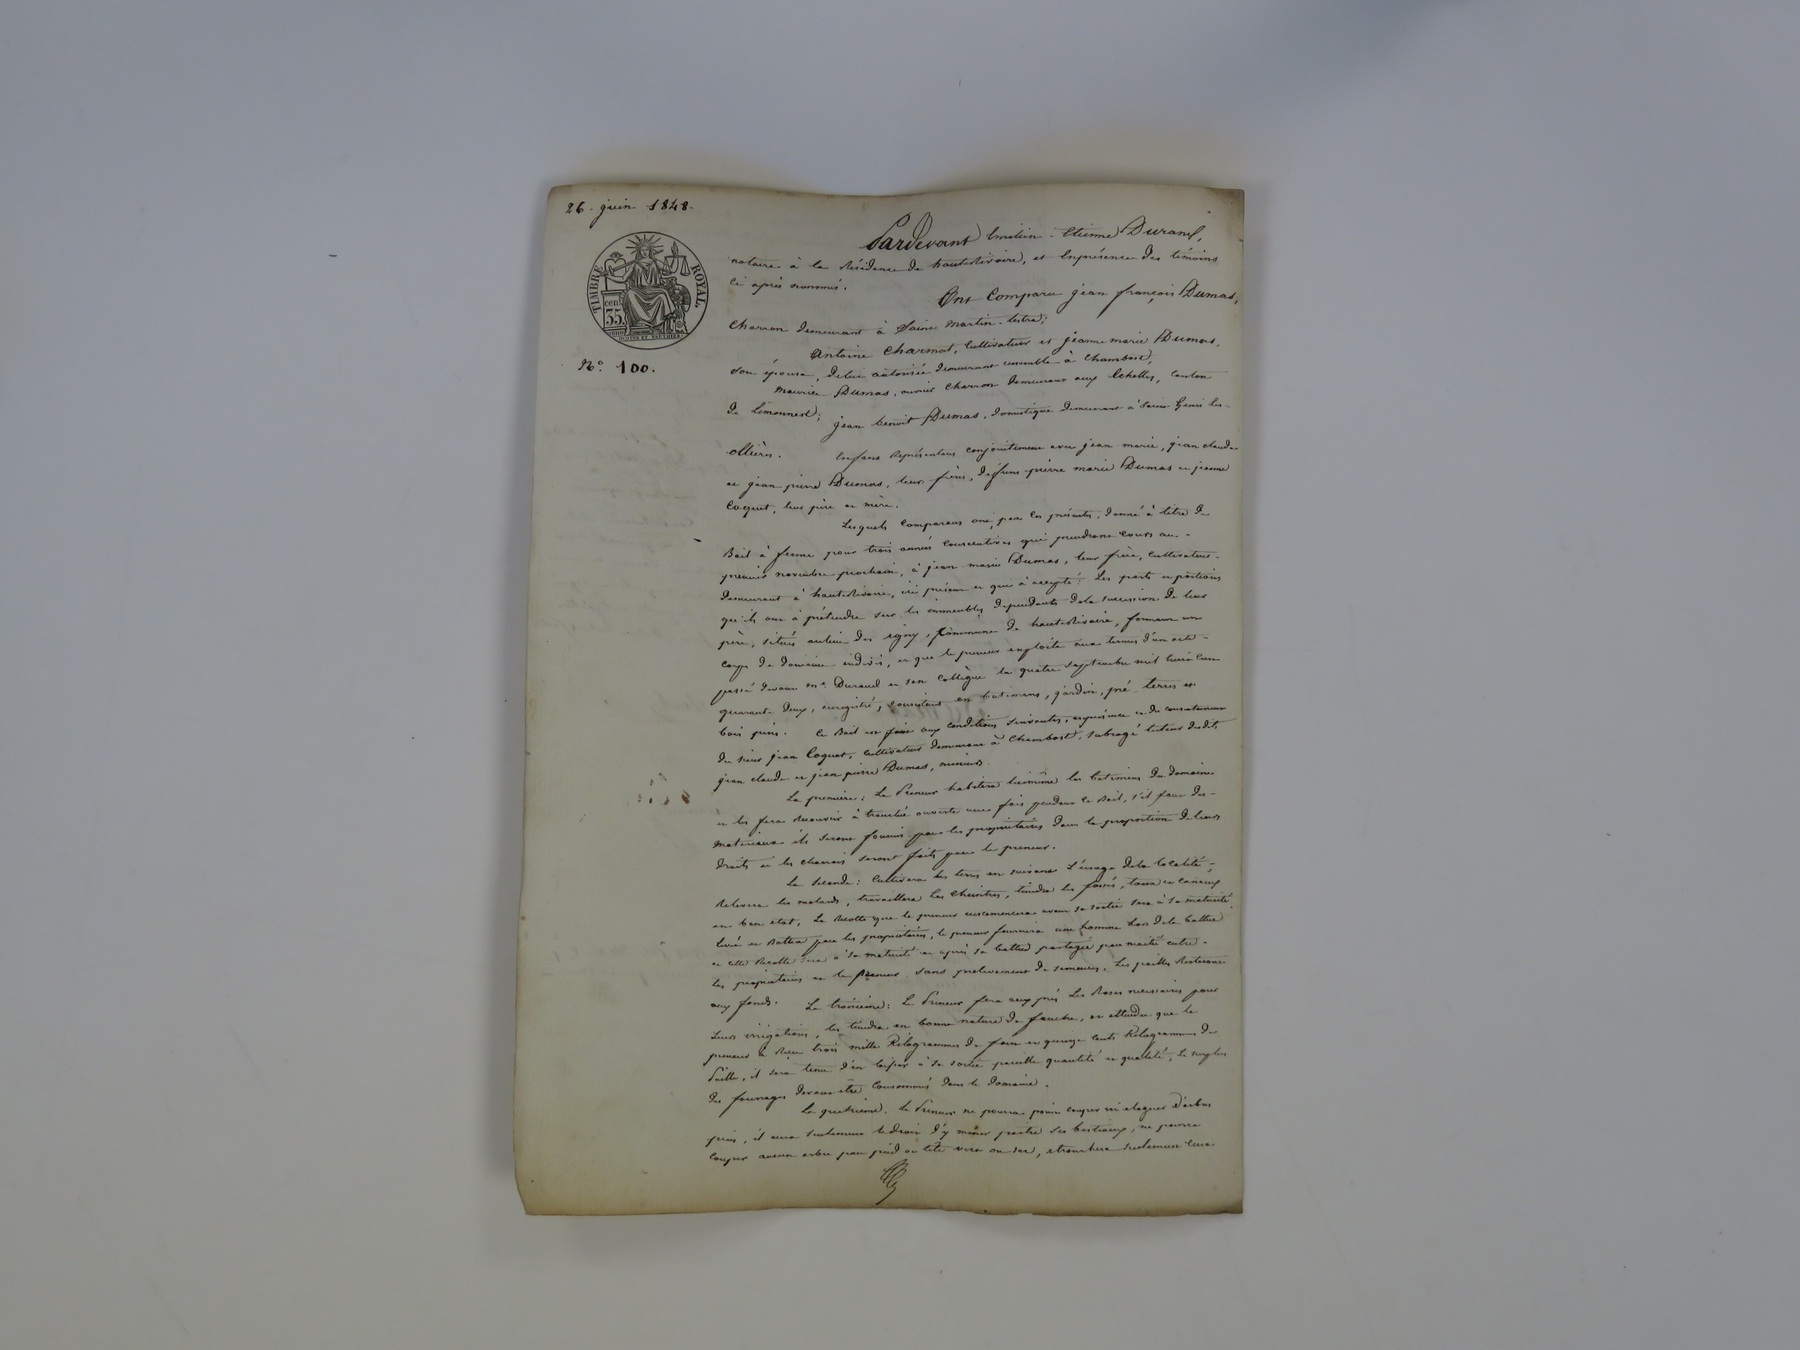 26. juin 1848.
TIMBRE ROYAL
cen
35
No. 100.
Pardevant Émilien-Étienne Durand,
notaire à la Résidence de hauteRivoire, et Enprésence des témoins
ci après nommés.
Ont Comparu jean françois Dumas,
Charron demeurant à Saint Martin-lestra;
Antoine Charmot, Cultivateur et jeanne marie Dumas,
son épouse, delui autorisée demeurant ensemble à Chambost;
Maurice Dumas, ouvrier Charron demeurant aux Echelles, canton
de Limonnest;
jean benoit Dumas, domestique demeurant à Saint Genis les-
ollières.
Enfans Représentans conjointement avec jean marie, jean claude
et jean pierre Dumas, leurs frères, défunts pierre marie Dumas et jeanne
Coquet, leurs père et mère.
Lesquels Comparans ont, par ces présentes, donné à titre de
Bail à ferme pour trois années consécutives qui prendront cours au-
premier novembre prochain, à jean-marie Dumas, leur frère, Cultivateur-
demeurant à hauteRivoire, ici présent et qui a accepté: Les parts et portions
qu'ils ont à prétendre sur les immeubles dépendants dela succession de leur
père, situés aulieu des igny, Commune de hauteRivoire, formant un
corps de domaine indivis, et que le preneur exploite aux termes d'un acte-
passé devant me. Durand et son Collègue le quatre septembre mil huit cent
quarante deux, enregistré, consistant en batimens, jardin, pré, terres et
bois pins. Ce Bail est fait aux conditions suivantes, enprésence et du consentement
du sieur jean Coquet, Cultivateur demeurant à Chambost, subrogé tuteur desdits
jean claude et jean pierre Dumas, mineurs.
La première: Le Preneur habitera luimême les batimens du domaine
et les fera Recouvrir à tranchée ouverte une fois pendant ce Bail, s'il faut des-
matériaux ils seront fournis par les propriétaires dans la proposition de leurs
droits et les charrois seront faits par le preneur.
La Seconde: Cultivera les terres en suivant l'usage dela localité,-
Relevera les molards, travaillera les Cheintres, tiendra les fossés, tous et canaux
en bon état, La Récolte que le preneur ensemencera avant sa sortie sera à sa maturité,
levée et Battue par les propriétaires, le preneur fournira une homme lors dela battue
et cette Récolte sera à sa maturité et après sa battue partagée par moitié entre-
les propriétaires et le preneur sans prélèvement de semences. Les pailles Resteront
aux fonds. La troisième: Le Preneur fera aux prés Les Rases nécessaires pour
leurs irrigations, les tiendra en bonne nature de fauche, et attendu que le
preneur a Reçu trois mille Kilogrammes de foin et quinze cents Kilogrammes de
Paille, il sera tenu d'en laisser à sa sortie pareille quantité et qualité, Le surplus
des fourrages devant être Consommés dans le domaine.
La quatrième. Le Preneur ne pourra point couper ni élaguer d'arbres
pins, il aura seulement le droit d'y mener paître ses bestiaux, ne pourra
couper aucun arbre par pied ou tête vert ou sec, etronchera seulement ceux